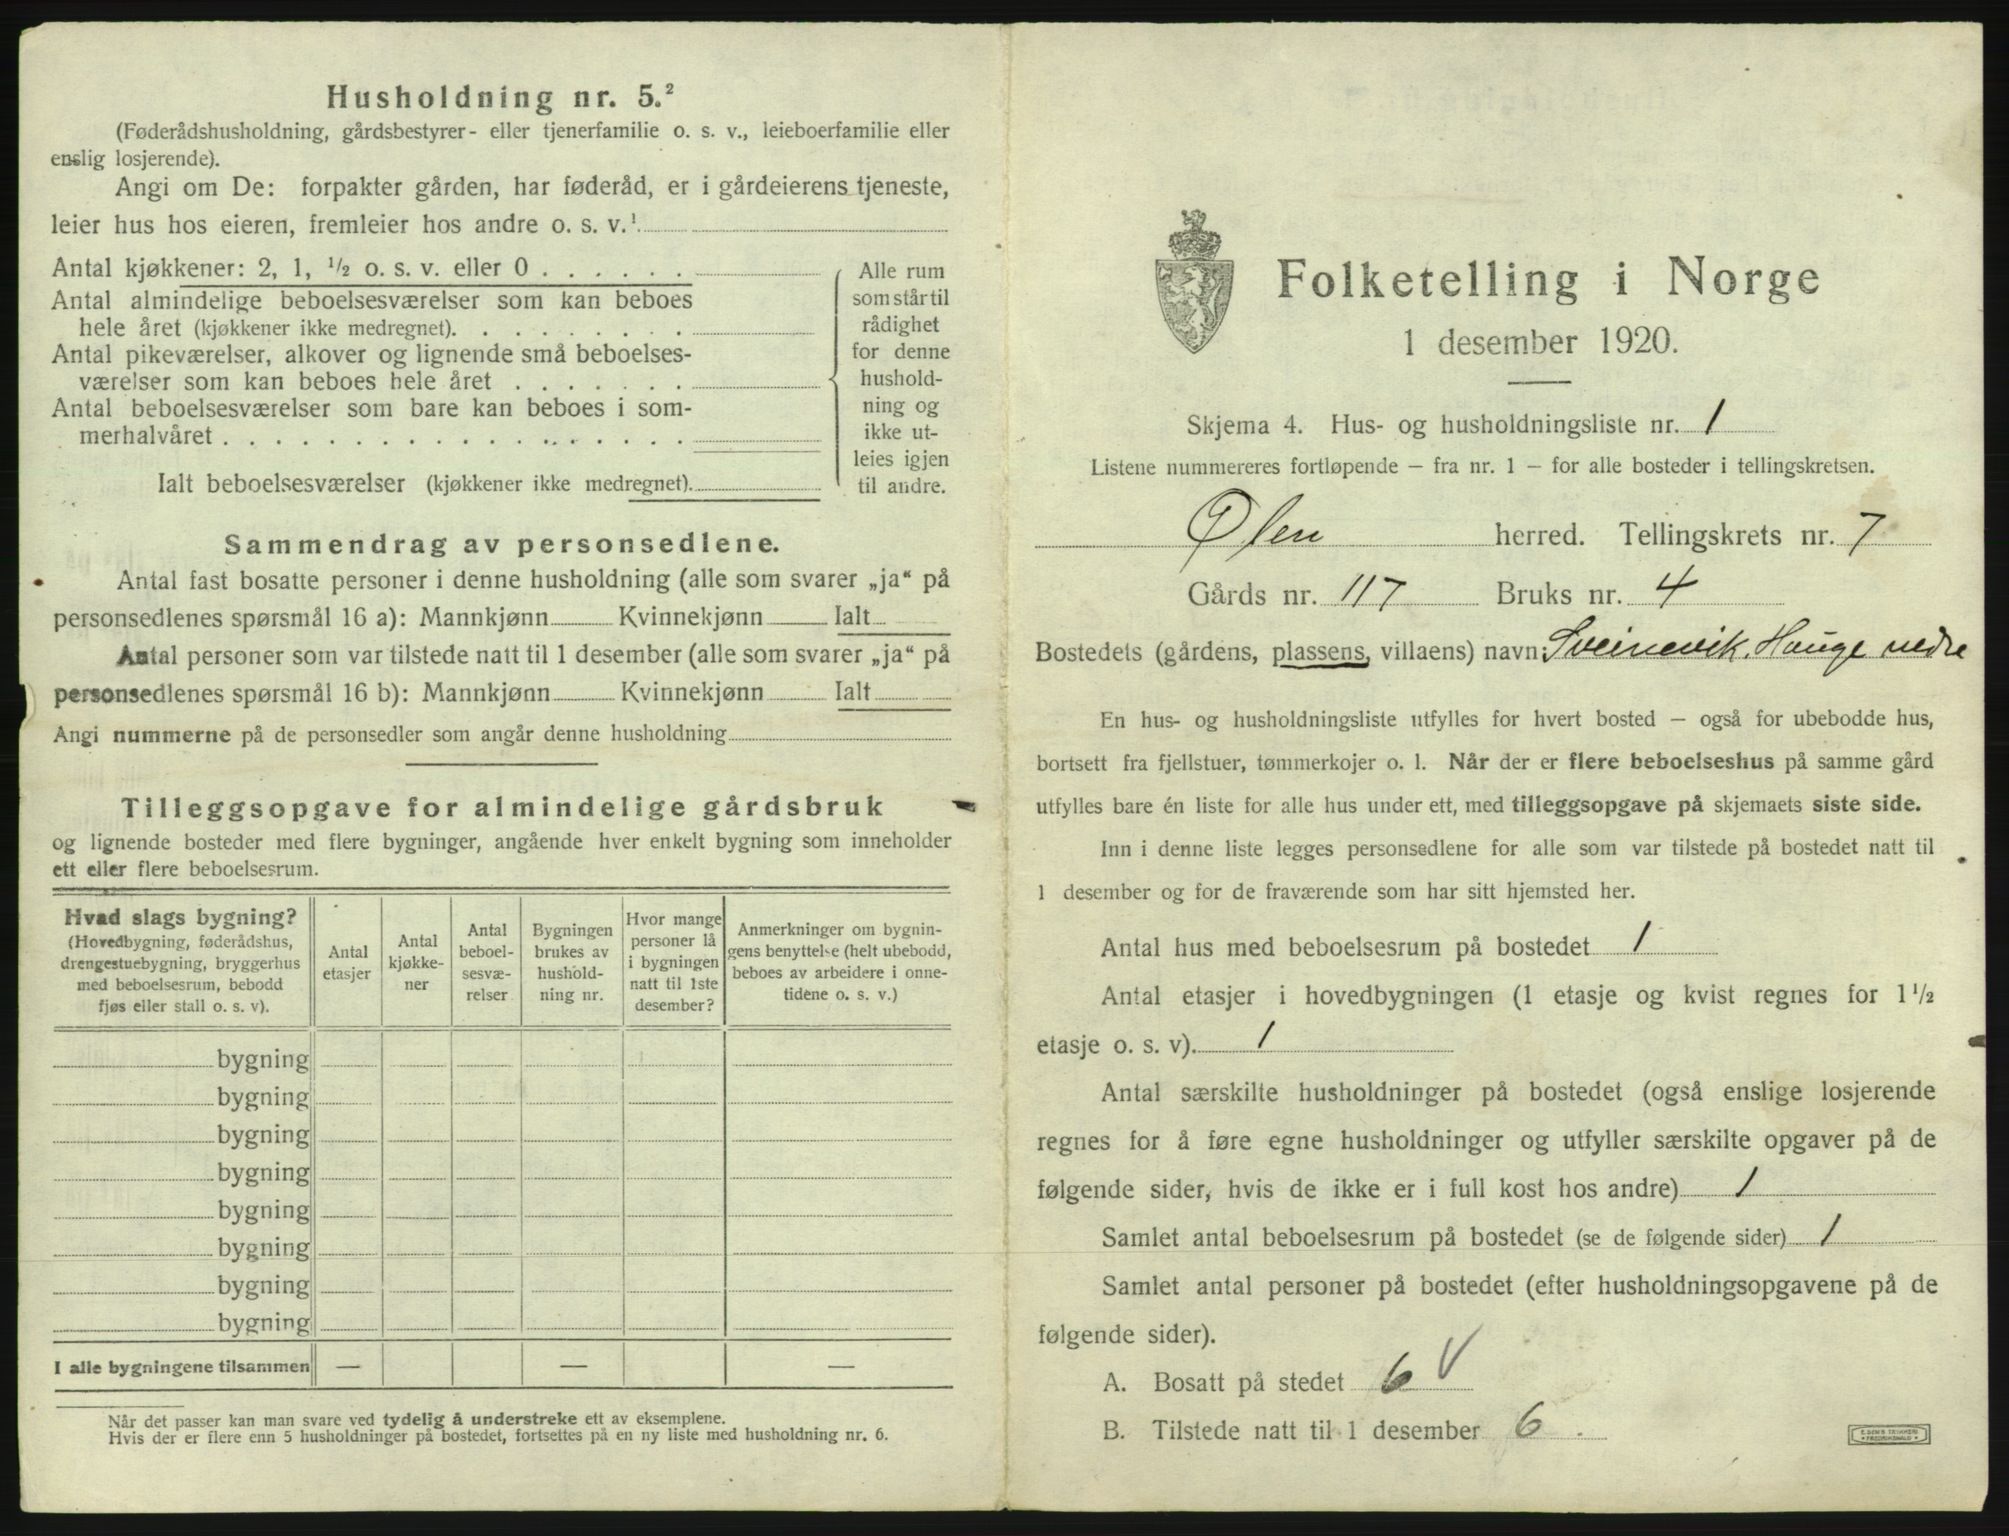 Husholdning nr. 5.²
(Føderådshusholdning, gårdsbestyrer- eller tjenerfamilie o. s. v., leieboerfamilie eller
enslig losjerende).
Angi om De: forpakter gården, har føderåd, er i gårdeierens tjeneste,
leier hus hos eieren, fremleier hos andre o. s. v.¹
Antal kjøkkener: 2, 1, ½ o. s. v. eller 0 . . . . . .
Antal almindelige beboelsesværelser som kan beboes
hele året (kjøkkener ikke medregnet). . . . . . . . .
Antal pikeværelser, alkover og lignende små beboelses-
værelser som kan beboes hele året . . . . . . .
Antal beboelsesværelser som bare kan beboes i som-
merhalvåret . . . . . . . . . . . . . . . . . .
Ialt beboelsesværelser (kjøkkener ikke medregnet).
Alle rum
som står til
rådighet
for denne
hushold-
ning og
ikke ut-
leies igjen
til andre.
Sammendrag av personsedlene.
Antal fast bosatte personer i denne husholdning (alle som svarer „ja“ på
personsedlenes spørsmål 16 a): Mannkjønn Kvinnekjønn Ialt
Antal personer som var tilstede natt til 1 desember (alle som svarer „ja“ på
personsedlenes spørsmål 16 b): Mannkjønn Kvinnekjønn Ialt
Angi nummerne på de personsedler som angår denne husholdning
Tilleggsopgave for almindelige gårdsbruk
og lignende bosteder med flere bygninger, angående hver enkelt bygning som inneholder
ett eller flere beboelsesrum.
Hvad slags bygning?
(Hovedbygning, føderådshus,
drengestuebygning, bryggerhus
med beboelsesrum, bebodd
fjøs eller stall o. s. v).
Antal
etasjer
Antal
kjøkke-
ner
Antal
beboel-
sesvæ-
relser
Bygningen
brukes av
hushold-
ning nr.
Hvor mange
personer lå
i bygningen
natt til 1ste
desember?
Anmerkninger om bygnin-
gens benyttelse (helt ubebodd,
beboes av arbeidere i onne-
tidene o. s. v.)
bygning
bygning
bygning
bygning
bygning
bygning
bygning
bygning
I alle bygningene tilsammen — — —
Når det passer kan man svare ved tydelig å understreke ett av eksemplene.
Hvis der er flere enn 5 husholdninger på bostedet, fortsettes på en ny liste med husholdning nr. 6.
Folketelling i Norge
1 desember 1920.
Skjema 4. Hus- og husholdningsliste nr. 1
Listene nummereres fortløpende – fra nr. 1 – for alle bosteder i tellingskretsen.
Ølen herred. Tellingskrets nr. 7
Gårds nr. 117 Bruks nr. 4
Bostedets (gårdens, plassens, villaens) navn: Sveinevik, Hauge nedre
En hus- og husholdningsliste utfylles for hvert bosted – også for ubebodde hus,
bortsett fra fjellstuer, tømmerkojer o. l. Når der er flere beboelseshus på samme gård
utfylles bare én liste for alle hus under ett, med tilleggsopgave på skjemaets siste side.
Inn i denne liste legges personsedlene for alle som var tilstede på bostedet natt til
1 desember og for de fraværende som har sitt hjemsted her.
Antal hus med beboelsesrum på bostedet 1
Antal etasjer i hovedbygningen (1 etasje og kvist regnes for 1½
etasje o. s. v). 1
Antal særskilte husholdninger på bostedet (også enslige losjerende
regnes for å føre egne husholdninger og utfyller særskilte opgaver på de
følgende sider, hvis de ikke er i full kost hos andre) 1
Samlet antal beboelsesrum på bostedet (se de følgende sider) 1
Samlet antal personer på bostedet (efter husholdningsopgavene på de
følgende sider).
A. Bosatt på stedet 6 V
B. Tilstede natt til 1 desember 6